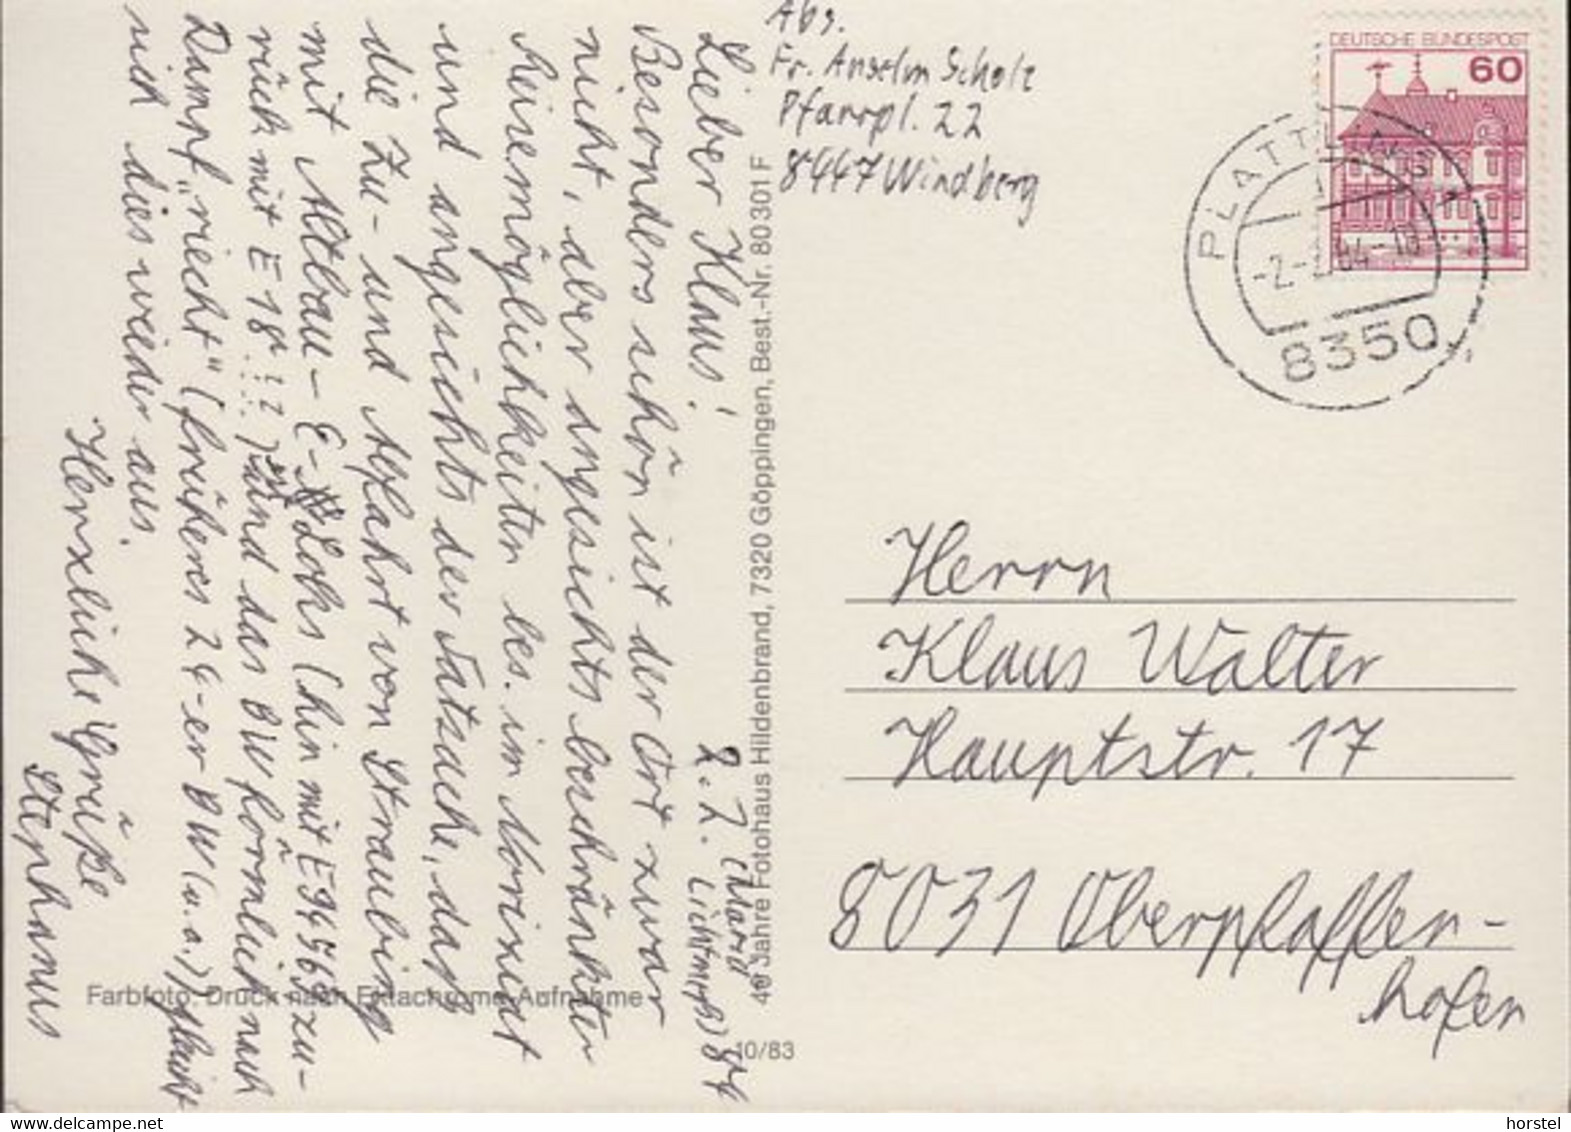 Abs.
Fr. Anselm Scholz
Pfarrpl. 22
8447 Windberg
DEUTSCHE BUNDESPOST
60
PLATTLING
8350
2.2. (Mariä
Lichtmeß) 84
Lieber Klaus!
Besonders schön ist der Ort zwar
nicht, aber angesichts beschränkter
Reisemöglichkeiten bes. im Noviziat
und angesichts der Tatsache, daß
die Zu- und Abfahrt von Straubing
mit Altbau-E-Loks (hin mit E94569 zu-
rück mit E18!!!) und das BW förmlich nach
Dampf "riecht" (früheres 64-er BW (u.a.)) gleicht
sich dies wieder aus.
Herzliche Grüße
Stephanus
Farbfoto: Druck nach Ektachrome-Aufnahme
40 Jahre Fotohaus Hildenbrand, 7320 Göppingen, Best.-Nr. 80301 F
10/83
Herrn
Klaus Walter
Hauptstr. 17
8031 Oberpfaffen-
hofen
horstel